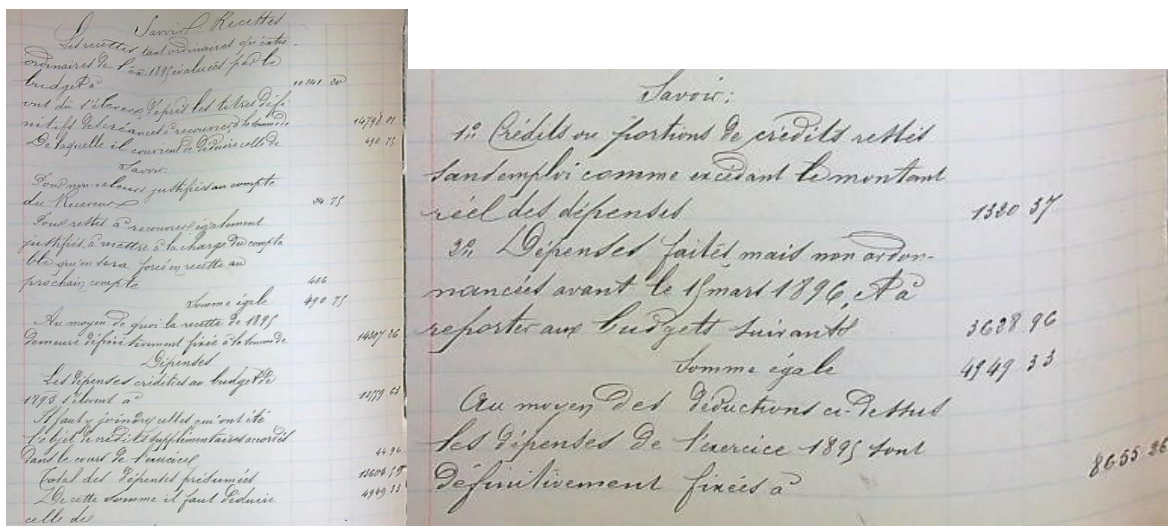 Savoir: Recettes
Les recettes tant ordinaires qu'extra-
ordinaires de l'ex. 1895 évaluées par le
budget à
ont dû s'élever d'après les titres défi-
nitifs de créances à recouvrer, à la somme de 14798 01
De laquelle il convient de déduire celle de 490 75
Savoir:
Pour non valeurs justifiées au compte
du Receveur 24 75
Pour restes à recouvrer également
justifiés, à mettre à la charge du compta
ble qui en sera forcé en recette au
prochain compte 466
Somme égale 490 75
Au moyen de quoi la recette de 1895
demeure définitivement fixée à la somme de 14307 26
Dépenses
Les dépenses créditées au budget de
1895 s'élèvent à
Il faut y joindre celles qui ont été
l'objet de crédits supplémentaires accordés
dans le cours de l'exercice
Total des dépenses présumées 13604 59
De cette somme il faut déduire 4949 33
celle de
Savoir:
1º Crédits ou portions de crédits restés
sans emploi comme excédant le montant
réel des dépenses 1320 37
2º Dépenses faites mais non ordon-
nancées avant le 15 mars 1896, et à
reporter aux budgets suivants 3628 96
Somme égale 4949 33
Au moyen des déductions ci-dessus
les dépenses de l'exercice 1895 sont
définitivement fixées à 8655 26